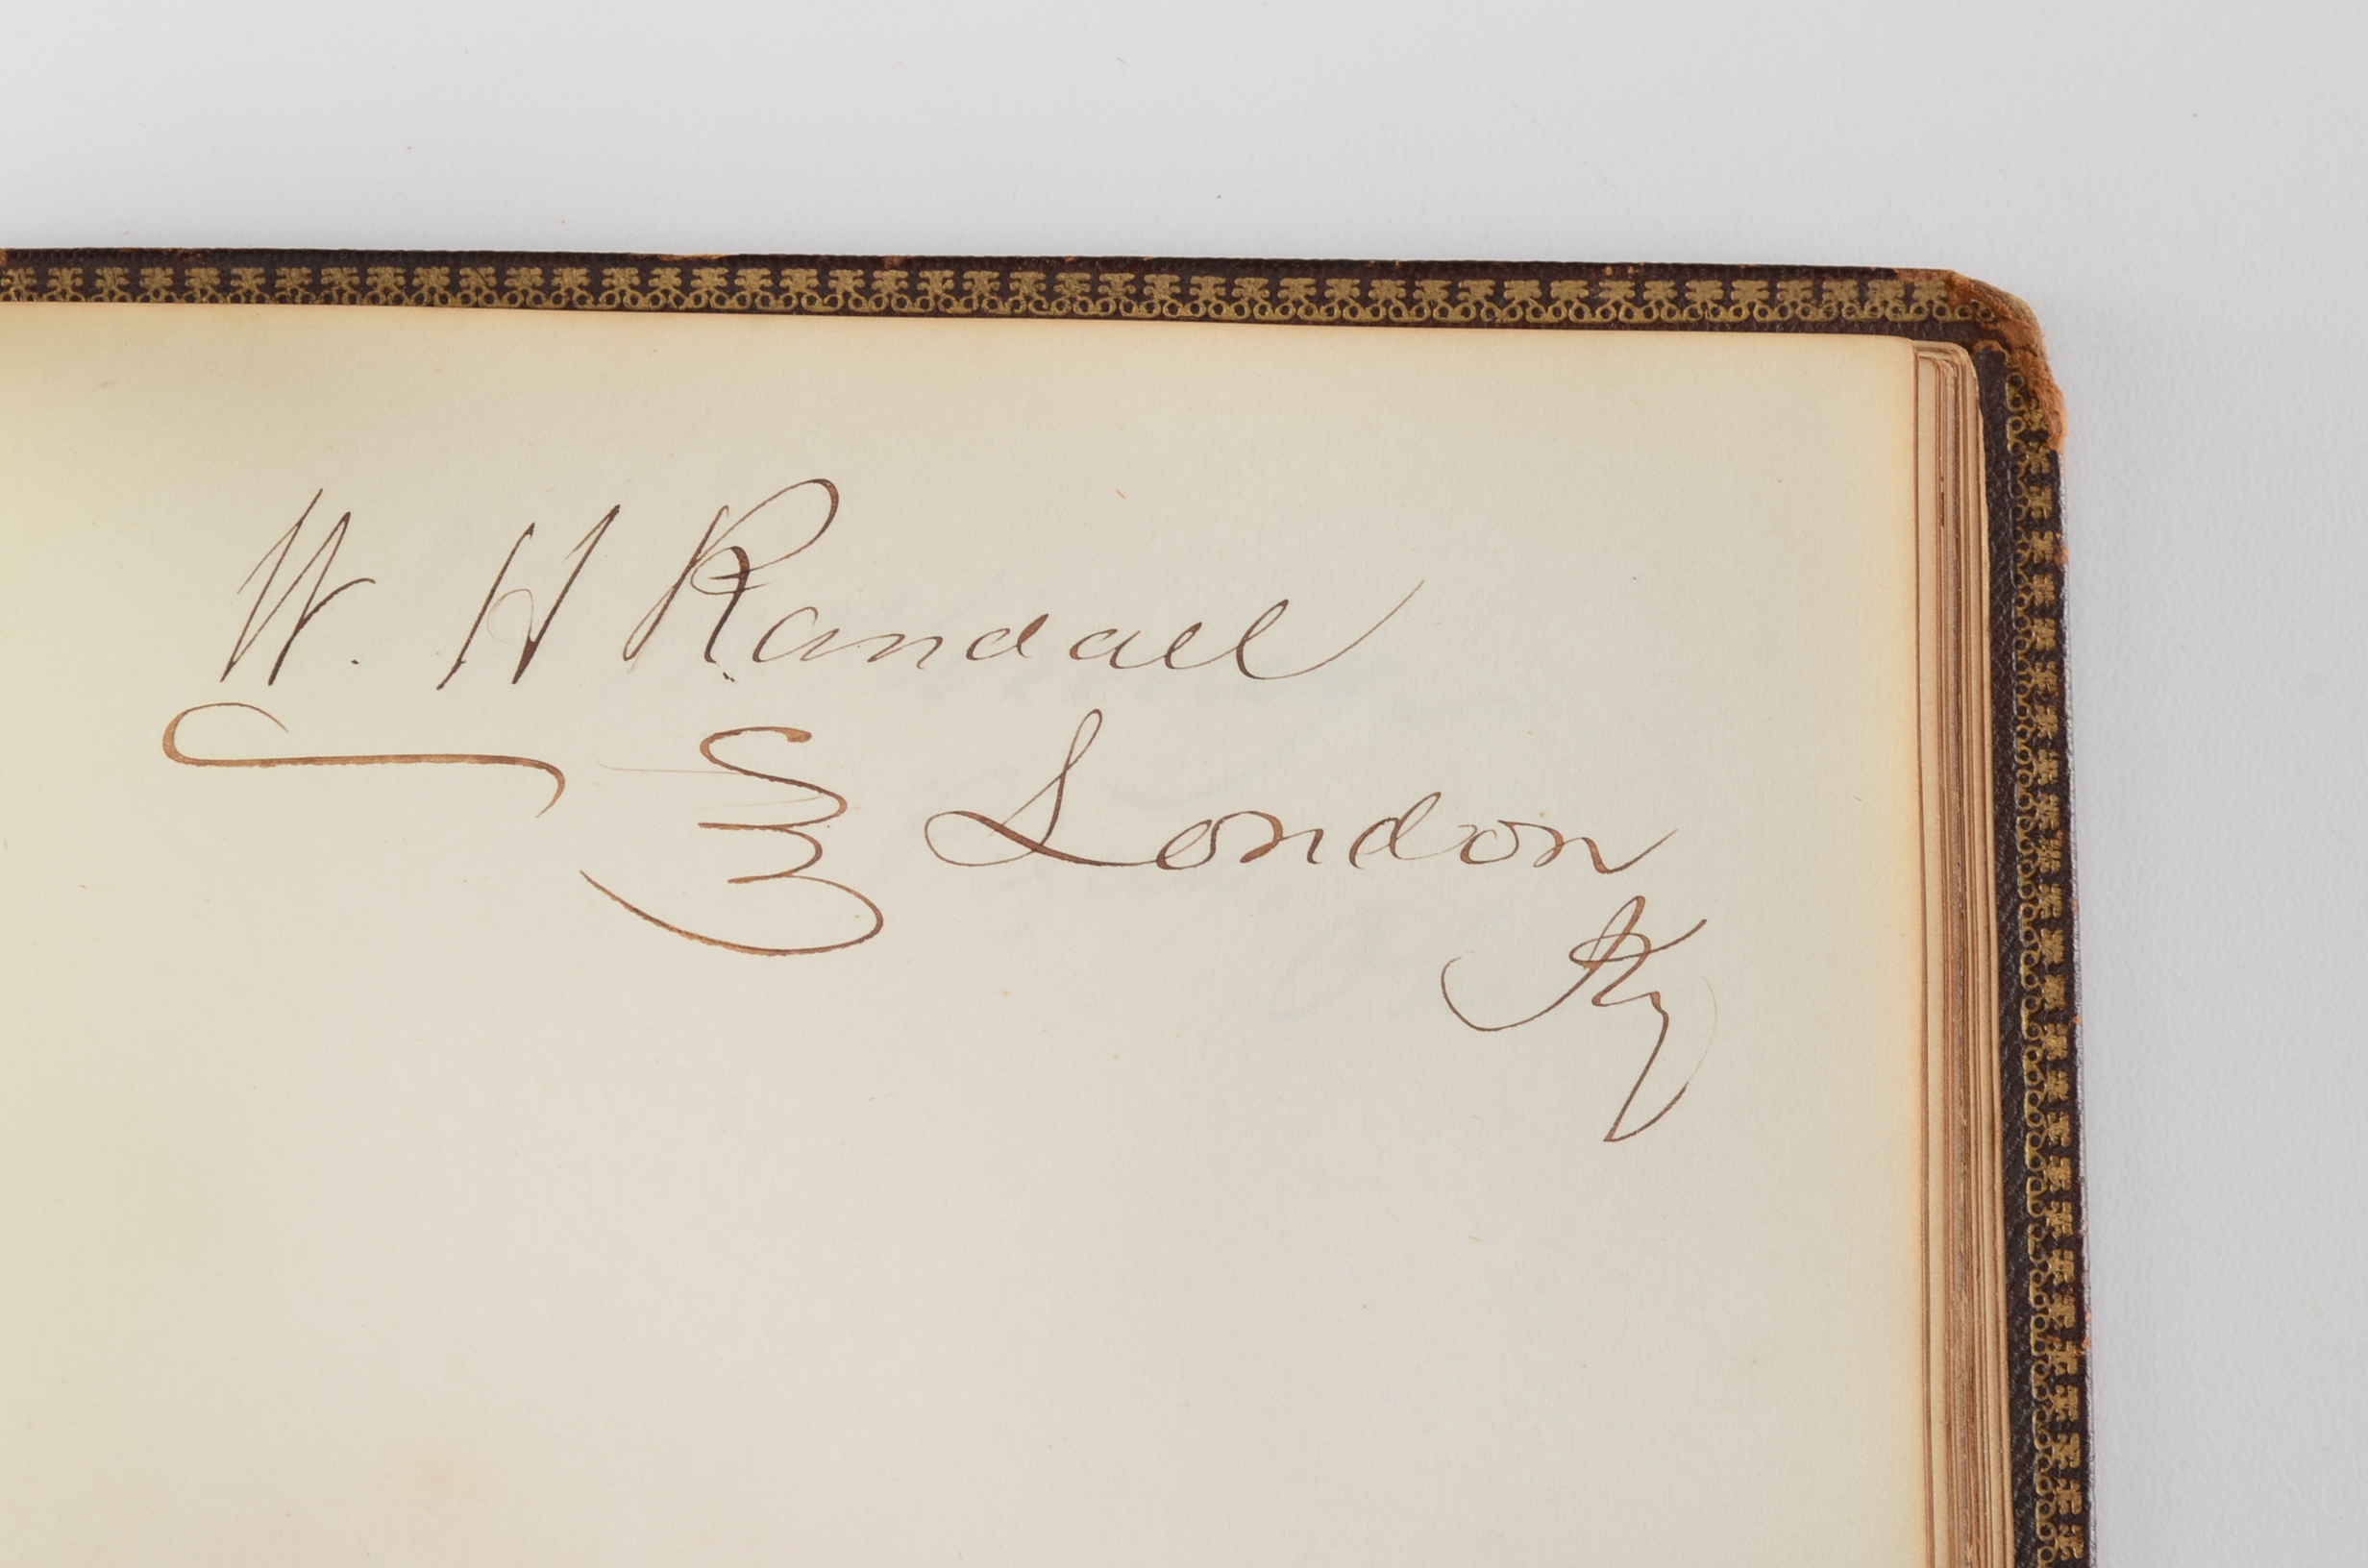 W. H Randall
London
Ky